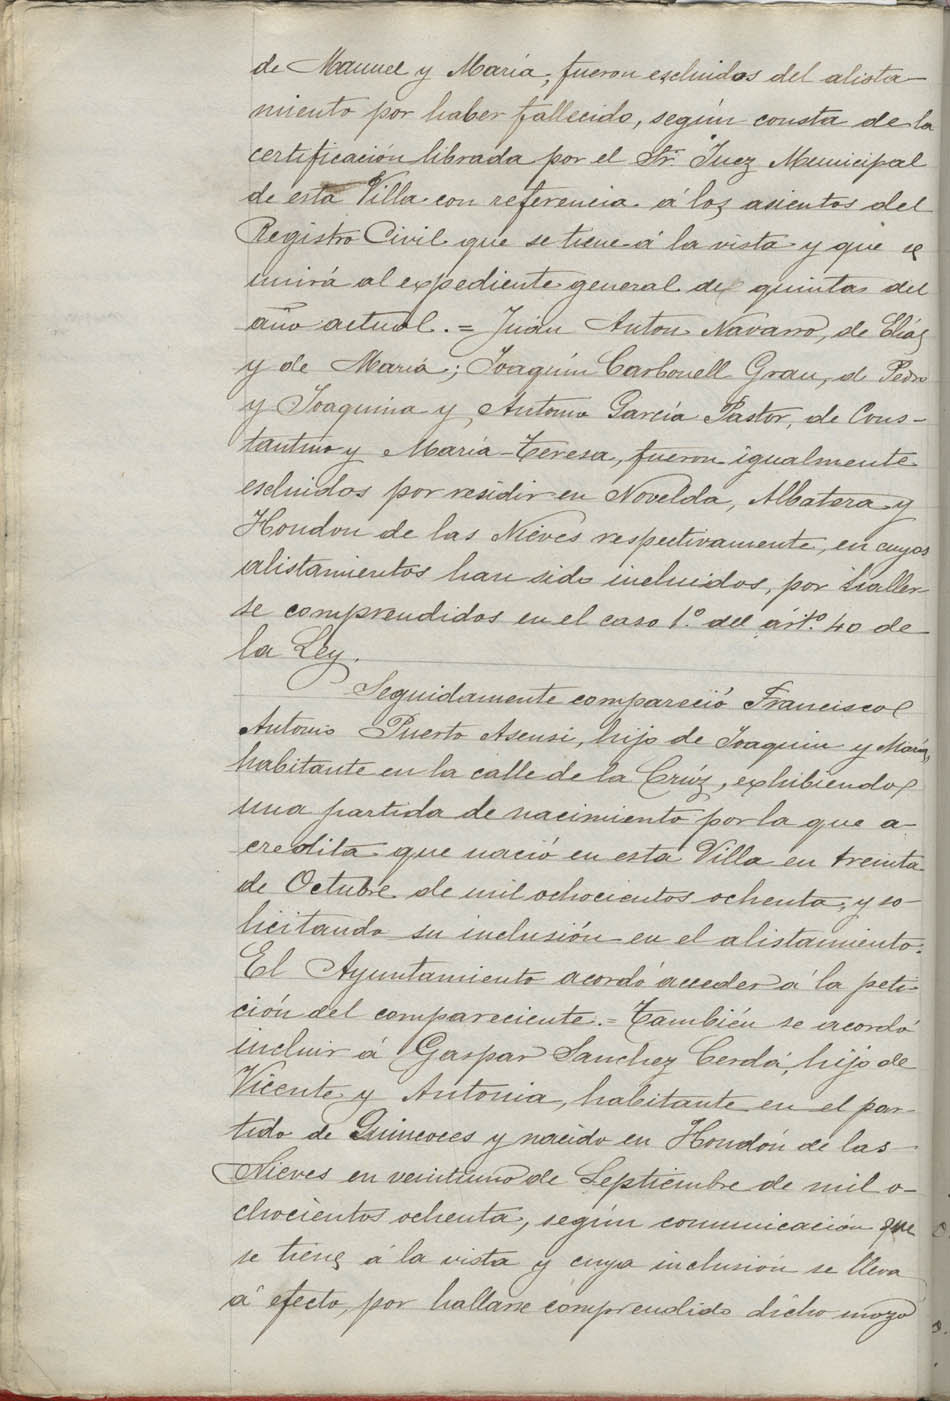 de Manuel y María, fueron escluidos del alista-
miento por haber fallecido, según consta de la
certificación librada por el Sr. Juez Municipal
de esta Villa con referencia á los asientos del
Registro Civil que se tiene á la vista y que se
unirá al expediente general de quintas del
año actual. = Juan Anton Navarro, de Elías
y de María; Joaquín Carbonell Grau, de Pedro
y Joaquina y Antonio García Pastor, de Cons-
tantino y María-Teresa, fueron igualmente
escluidos por residir en Novelda, Albatera y
Hondon de las Nieves respectivamente, en cuyos
alistamientos han sido incluidos, por haller-
se comprendidos en el caso 1.º del árt.º 40 de
la Ley.
Seguidamente compareció Francisco
Antonio Puerto Asensi, hijo de Joaquin y María,
habitante en la calle de la Crúz, exhibiendo
una partida de nacimiento por la que a-
credita que nació en esta Villa en treinta
de Octubre de mil ochocientos ochenta, y so-
licitando su inclusión en el alistamiento.
El Ayuntamiento acordó acceder á la peti-
ción del compareciente. = También se acordó
incluir á Gaspar Sanchez Cerdá, hijo de
Vicente y Antonia, habitante en el par-
tido de Quincoces y nacido en Hondón de las
Nieves en veintiuno de Septiembre de mil o-
chocientos ochenta, según comunicación que
se tiene á la vista y cuya inclusión se lleva
á efecto, por hallarse comprendido dicho mozo